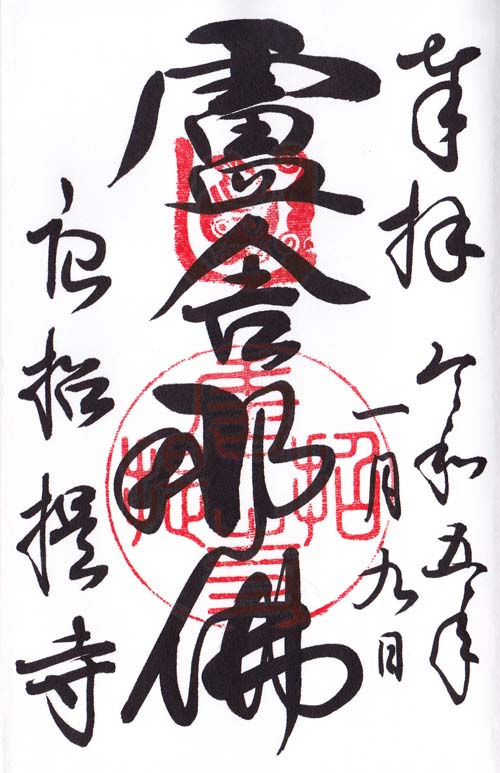 奉拝
令和五年
一月九日
盧舎那佛
唐招提寺